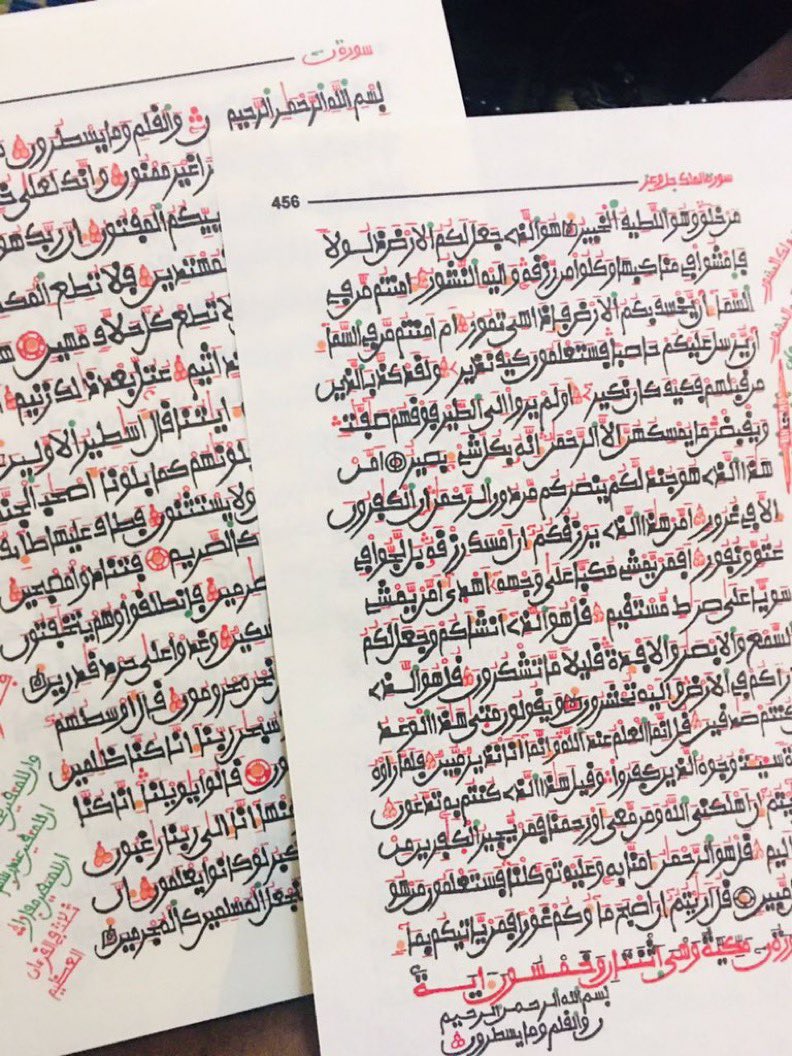 سورة الملك جل وعز
456
من خلق وهو اللطيف الخبير هو الذي جعل لكم الارض ذلولا
فامشوا في مناكبها وكلوا من رزقه واليه النشور امنتم من في
السما ان يخسف بكم الارض فاذا هي تمور ام امنتم من في السما
ان يرسل عليكم حاصبا فستعلمون كيف نذير ولقد كذب الذين
من قبلهم فكيف كان نكير اولم يروا الى الطير فوقهم صفت
ويقبضن ما يمسكهن الا الرحمن انه بكل شيء بصير امن
هذا الذي هو جند لكم ينصركم من دون الرحمن ان الكفرون
الا في غرور امن هذا الذي يرزقكم ان امسك رزقه بل لجوا في
عتو ونفور افمن يمشي مكبا على وجهه اهدى امن يمشي
سويا على صرط مستقيم قل هو الذي انشاكم وجعل لكم
السمع والابصر والافدة قليلا ما تشكرون قل هو الذي
ذراكم في الارض واليه تحشرون ويقولون متى هذا الوعد
كنتم صدقين قل انما العلم عند الله وانما انا نذير مبين فلما راوه
سيئت وجوه الذين كفروا وقيل هذا الذي كنتم به تدعون
ارايتم ان اهلكني الله ومن معي او رحمنا فمن يجير الكفرين من
اليم قل هو الرحمن امنا به وعليه توكلنا فستعلمون من هو
مبين قل ارايتم ان اصبح ماوكم غورا فمن ياتيكم بما
سورة ن مكية وهي اثنتان وخمسون اية
بسم الله الرحمن الرحيم
ن والقلم وما يسطرون
سورة ن
بسم الله الرحمن الرحيم
ن والقلم وما يسطرون
غير ممنون وانك لعلى
المفتون ان ربك هو
فلا تطع المكذ
ولا تطع كل حلاف مهين
اثيم عتل بعد ذلك زنيم
ايتنا قال اسطير الاولين
بلونهم كما بلونا اصحب الجنة
ولا يستثنون فطاف عليها طايف
كالصريم فتنادوا مصبحين
صرمين فانطلقوا وهم يتخفتون
مسكين وغدوا على حرد قدرين
نحن محرومون قال اوسطهم
سبحن ربنا انا كنا ظلمين
قالوا يويلنا انا كنا
منها انا الى ربنا رغبون
اكبر لو كانوا يعلمون ان
افنجعل المسلمين كالمجرمين